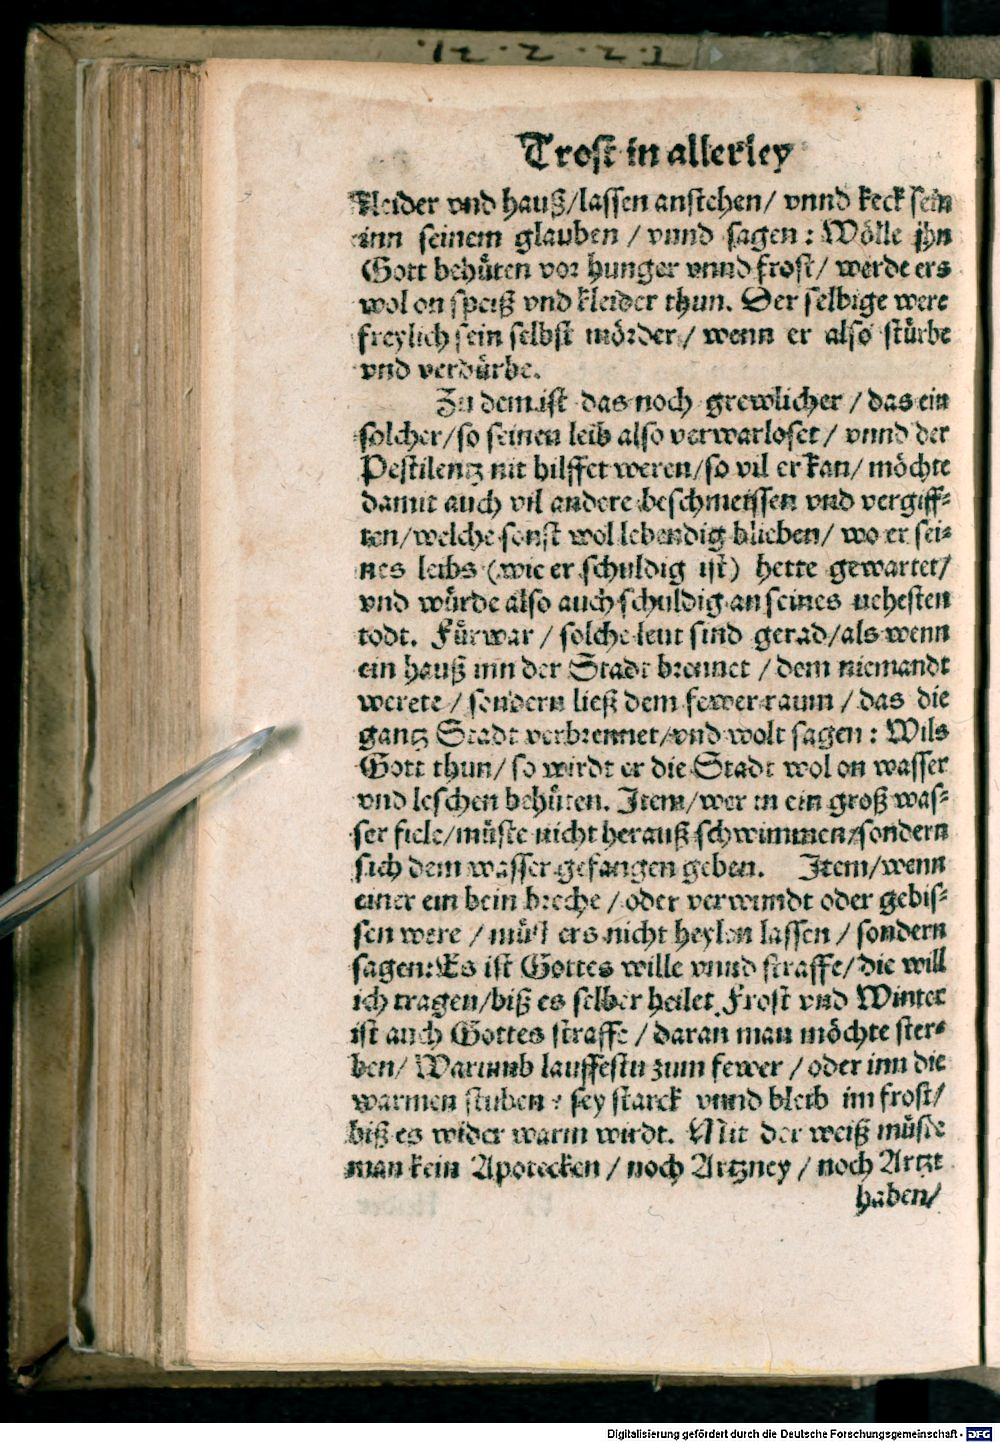 12.2.21
Trost in allerley
kleider vnd hauß/lassen anstehen/ vnnd keck sein
inn seinem glauben / vnnd sagen: Wölle jhn
Gott behüten vor hunger vnnd frost/ werde ers
wol on speiß vnd kleider thun. Der selbige were
freylich sein selbst mörder/ wenn er also stürbe
vnd verdürbe.
Zu dem ist das noch grewlicher / das ein
solcher/so seinen leib also verwarloset/ vnnd der
Pestilentz nit hilffet weren/so vil er kan/ möchte
damit auch vil andere beschmeissen vnd vergiff-
ten/welche sonst wol lebendig blieben/ wo er sei-
nes leibs (wie er schuldig ist) hette gewartet/
vnd würde also auch schuldig an seines nehesten
todt. Fürwar / solche leut sind gerad/als wenn
ein hauß inn der Stadt brennet / dem niemandt
werete / sondern ließ dem fewer raum / das die
gantz Stadt verbrennet/vnd wolt sagen: Wils
Gott thun/ so wirdt er die Stadt wol on wasser
vnd leschen behüten. Item/wer in ein groß was-
ser fiele/müste nicht herauß schwimmen/sondern
sich dem wasser gefangen geben. Item/wenn
einer ein bein breche / oder verwundt oder gebis-
sen were / müst ers nicht heylen lassen / sondern
sagen: Es ist Gottes wille vnnd straffe/die will
ich tragen/biß es selber heilet. Frost vnd Winter
ist auch Gottes straffe / daran man möchte ster-
ben/ Warumb lauffestu zum fewer / oder inn die
warmen stuben? sey starck vnnd bleib im frost/
biß es wider warm wirdt. Mit der weiß müste
man kein Apotecken / noch Artzney / noch Artzt
haben/
Digitalisierung gefördert durch die Deutsche Forschungsgemeinschaft - DFG